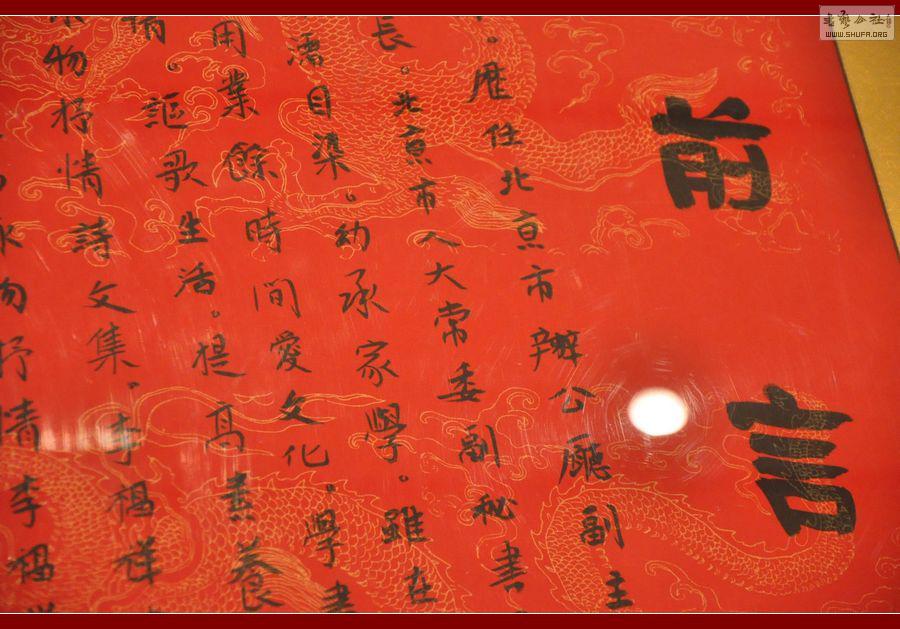 前言
历任北京市辦公廳副主
長。北京市人大常委副秘書
濡目染。幼承家學。雖在
用業餘時間愛文化。學書
情。謳歌生活。提高素養
物抒情詩文集。李福祥
物抒情李福
書藝公社
WWW.SHUFA.ORG